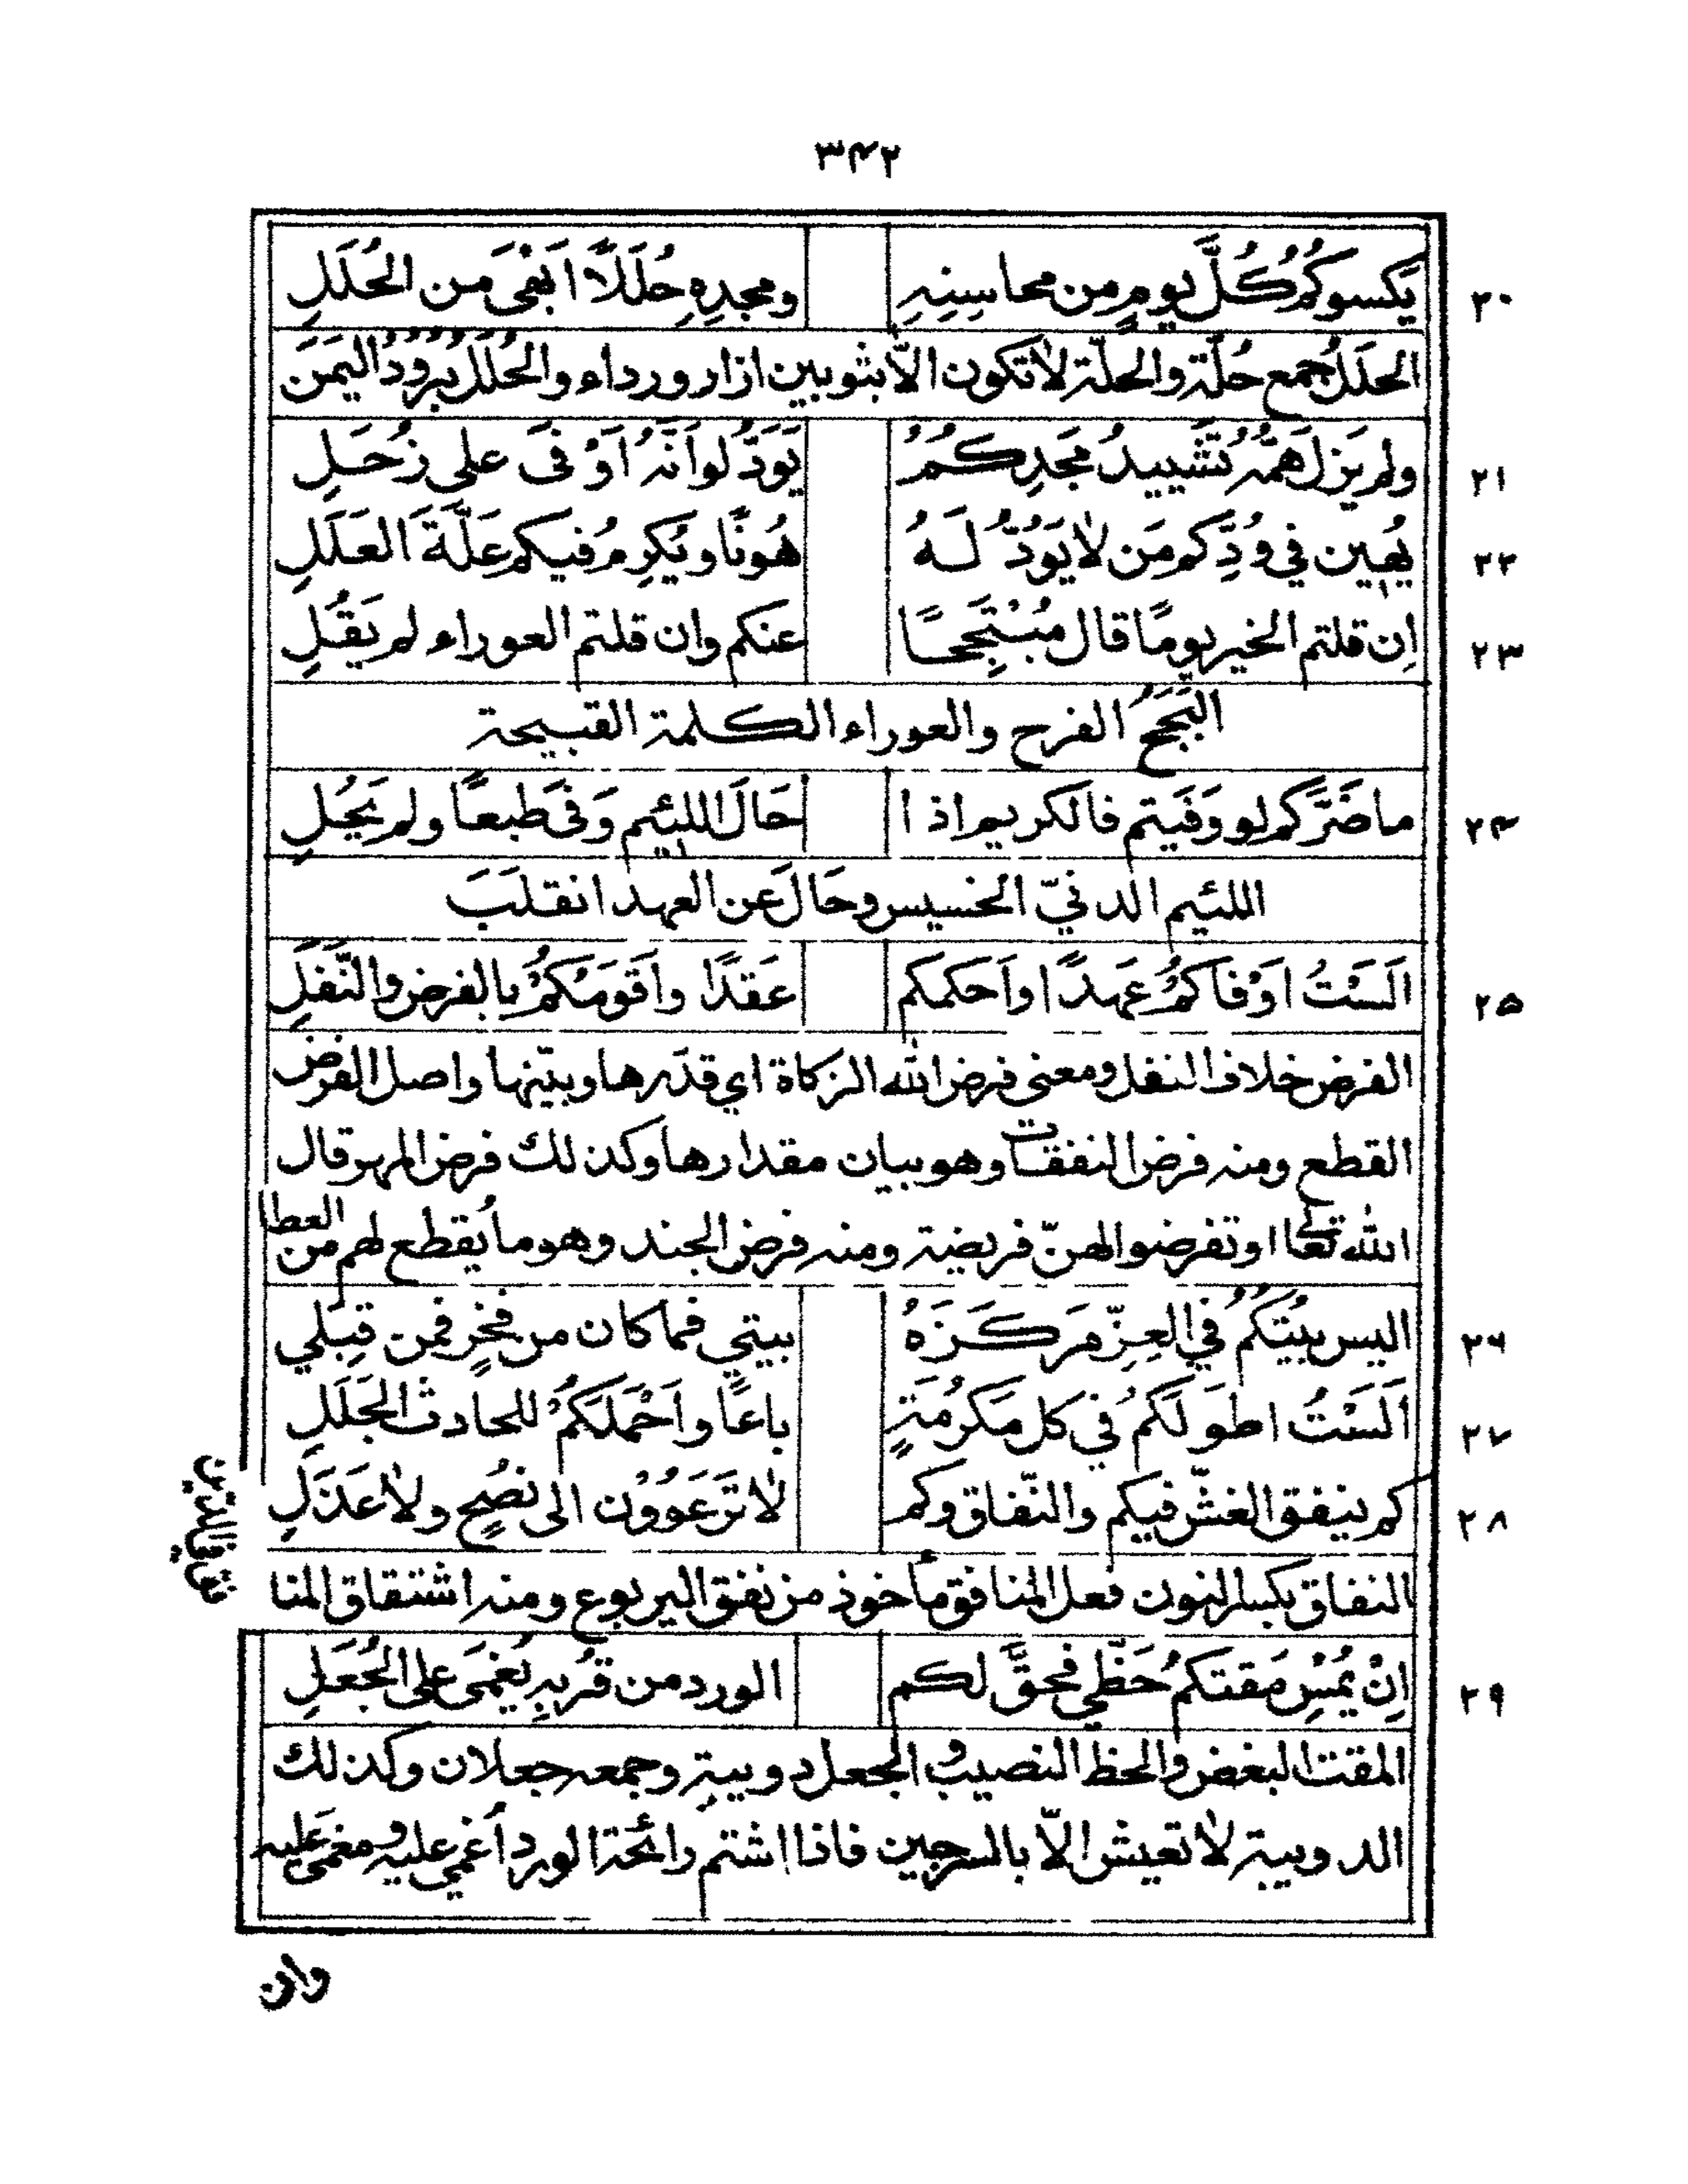 ۳۴۲
۲۰ يَكسوكُمُ كُلَّ يومٍ من محاسِنِهِ ومجدِهِ حُلَلًا اَبْقَى مَن الحُلَلِ
الحلَلُ جمع حُلّة والحلّة لا تكون الاّ بثوبين ازار ورداء والحُلَلُ بُرُودُ اليَمَن
۲۱ ولم يَزِل هَمُّهُ تَشييدُ مَجَدِكُمُ يَوَدُّ لو اَنَّهُ اَوْفَى على زُحَلِ
۲۲ يُهِين في وُدِّكم مَن لا يَوَدُّ لَهُ هُونًا ويُكرِمُ فيكم عَلَّةَ العَلَلِ
۲۳ اِن قلتم الخير يومًا قال مُبْتَجِحًا عنكم وان قلتم العوراء لم يَقُلِ
البَجَحُ الفرح والعوراء الكلمة القبيحة
۲۴ ما ضَرَّكم لو وَفَيتم فالكريم اذا حَالَ اللئيم وَفَى طبعًا ولم يَحُلِ
اللئيم الدنيّ الخسيس وحَالَ عَن العهد انقلَبَ
۲۵ اَلَسْتُ اَوْفاكمُ عَهدًا واَحكمكم عَقدًا واَقوَمَكُمْ بالفرض والنَّفَلِ
الفرض خلاف النفل ومعنى فرض الله الزكاة اي قدّرها وبيّنها واصل الفرض
القطع ومنه فرض النفقات وهو بيان مقدارها وكذلك فرض المهر قال
الله تعالى او تفرضوا لهنّ فريضة ومنه فرض الجند وهو ما يُقطع لهم من العطا
۲۶ اليس بيُتكُمُ في العِزّ مَركَزَهُ بيتي فما كان من فخرٍ فمن قِبَلي
۲۷ اَلَسْتُ اطوَلَكمُ في كل مَكرُمَةٍ باعًا واَحْمَلَكمُ للحادث الجَلَلِ
۲۸ كم ينفق الغشّ فيكم والنّفاق وكم لا تَرعَوُوْن الى نُصْحٍ ولا عَذَلِ
النفاق بكسر النون فعل المنافق مأخوذ من نفق اليربوع ومنه اشتقاق المنا
۲۹ اِنْ يُمْسِ مَقتكمُ حَظّي فحقَّ لكم الورد من قُربِهِ يُغمَى على الجُعَلِ
المقت البغض والحظ النصيب و الجعل دويبة وجمعه جعلان وكذلك
الدويبة لا تعيش الاّ بالسرجين فاذا اشتم رائحة الورد اُغمي عليه و مغمَى عليه
وان